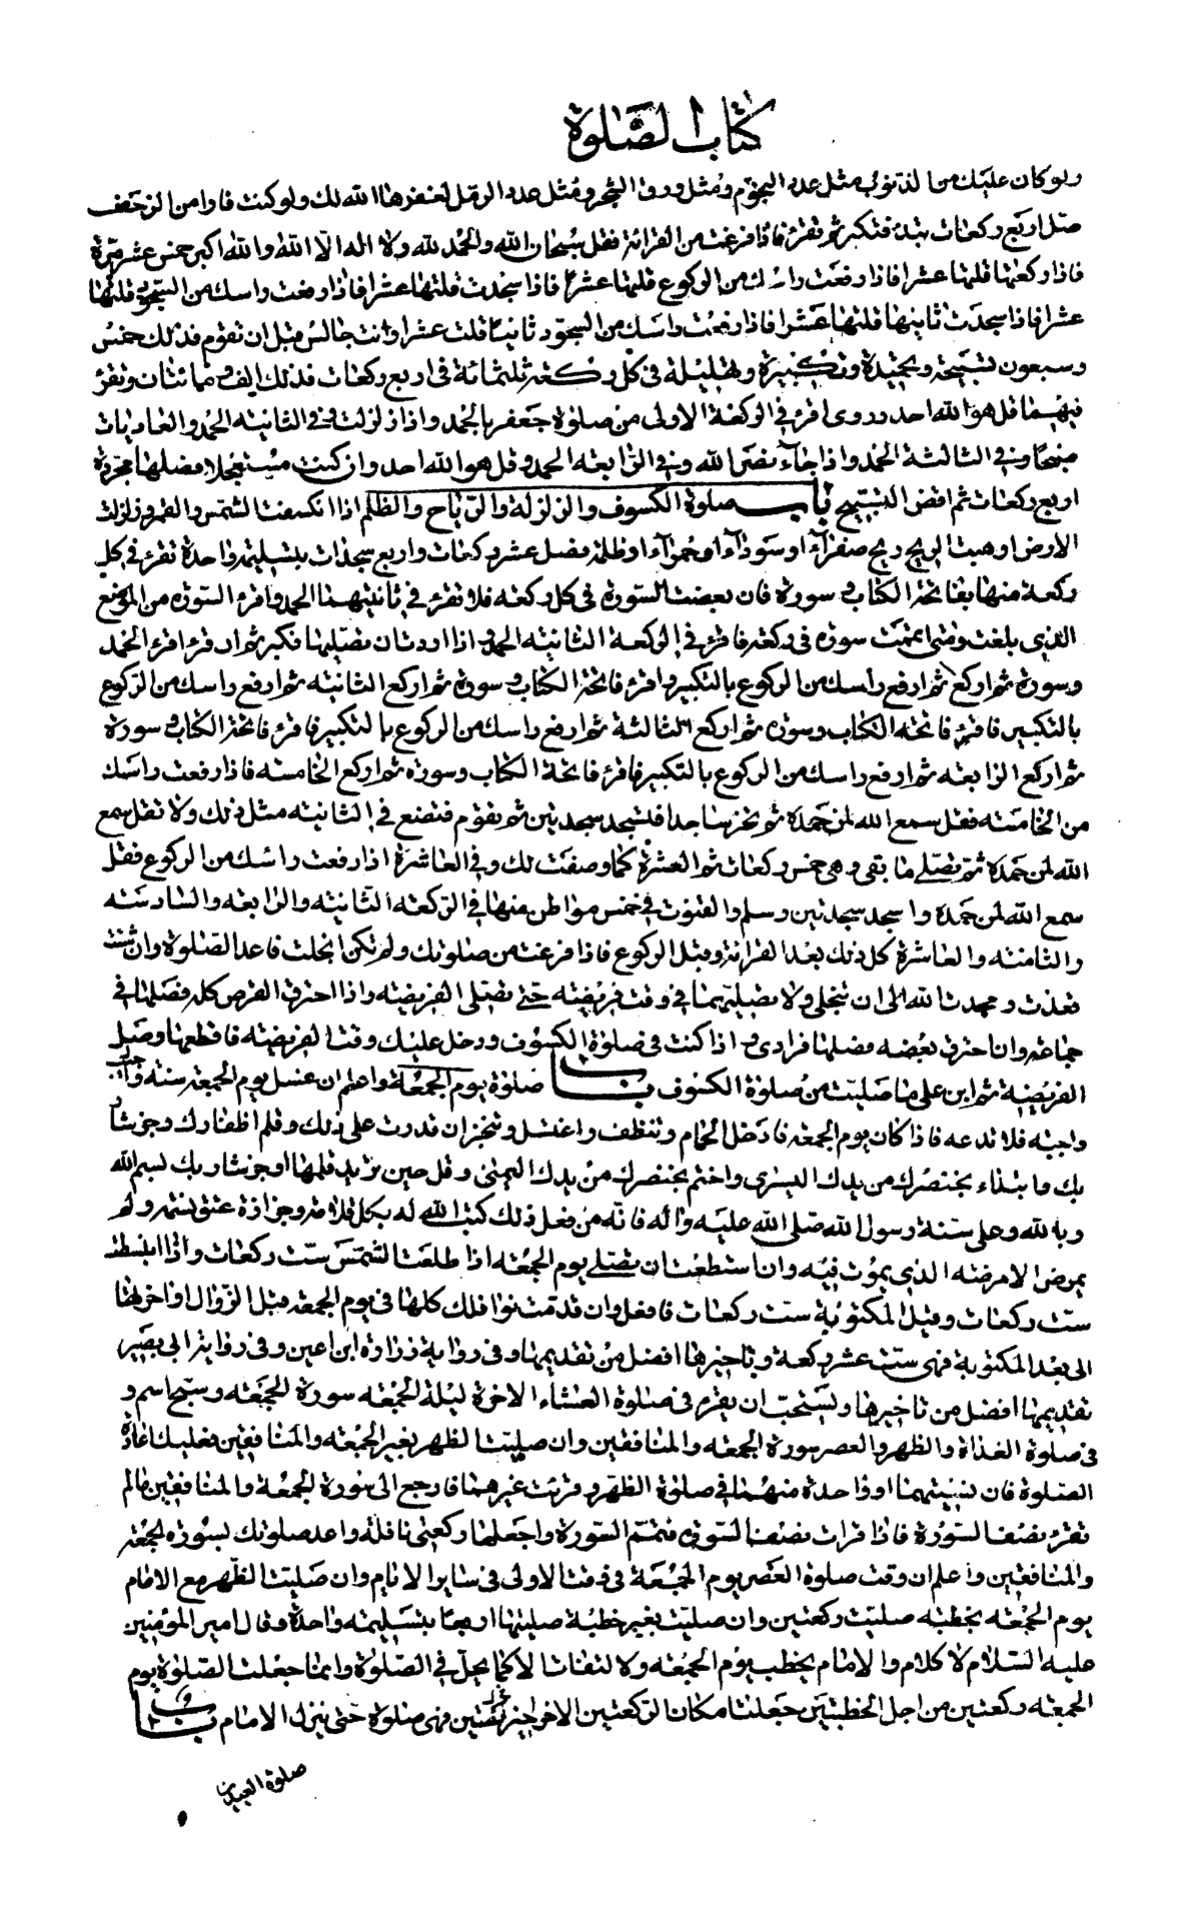 كتاب الصلوة
ولو كان عليك من الذنوب مثل عدد النجوم ومثل ورق الشجر ومثل عدد الرمل لغفرها الله لك ولو كنت فارا من الزحف
صل اربع ركعات تبدء فتكبر ثم تقرء فاذا فرغت من القرائة فقل سبحان الله والحمد لله ولا اله الا الله والله اكبر خمس عشر مرة
فاذا ركعتها قلتها عشرا فاذا رفعت راسك من الركوع قلتها عشرا فاذا سجدت قلتها عشرا فاذا رفعت راسك من السجود قلتها
عشرا فاذا سجدت ثانيها قلتها عشرا فاذا رفعت راسك من السجود ثانيا قلت عشرا وانت جالس قبل ان تقوم فذلك خمس
وسبعون تسبيحة وتحميدة وتكبيرة وتهليلة في كل ركعة ثلثمائة في اربع ركعات فذلك الف ومائتان وتقرء
فيهما قل هو الله احد وروى اقرء في الركعة الاولى من صلوة جعفر بالحمد واذا زلزلت وفي الثانية الحمد والعاديات
ضبحا وفي الثالثة الحمد واذا جاء نصر الله وفي الرابعة الحمد وقل هو الله احد وان كنت مستعجلا فصلها مجردة
اربع ركعات ثم اقض التسبيح باب صلوة الكسوف والزلزلة والرياح والظلم اذا انكسفت الشمس والقمر وزلزلت
الارض او هبت الريح ريح صفراء او سوداء او حمراء او ظلمة فصل عشر ركعات واربع سجدات بتسليمة واحدة تقرء في كل
ركعة منها بفاتحة الكتاب وسورة فان بعضت السورة في كل ركعة فلا تقرء في ثانيتهما الحمد واقرء السورة من الموضع
الذي بلغت ومتى اتممت سورة في ركعة فاقرء في الركعة الثانية الحمد واذا اردت ان تصليها فكبر ثم اقرء الحمد
وسورة ثم اركع ثم ارفع راسك من الركوع بالتكبير واقرء فاتحة الكتاب وسورة ثم اركع الثانية ثم ارفع راسك من الركوع
بالتكبير فاقرء فاتحة الكتاب وسورة ثم اركع الثالثة ثم ارفع راسك من الركوع بالتكبير فاقرء فاتحة الكتاب وسورة
ثم اركع الرابعة ثم ارفع راسك من الركوع بالتكبير فاقرء فاتحة الكتاب وسورة ثم اركع الخامسة فاذا رفعت راسك
من الخامسة فقل سمع الله لمن حمده ثم تخر ساجدا فتسجد سجدتين ثم تقوم فتصنع في الثانية مثل ذلك ولا تقل سمع
الله لمن حمده ثم تصلي ما بقى وهى خمس ركعات ثم العشرة كما وصفت لك وفي العاشرة اذا رفعت راسك من الركوع فقل
سمع الله لمن حمده واسجد سجدتين وسلم والقنوت في خمس مواطن منها في الركعة الثانية والرابعة والسادسة
والثامنة والعاشرة كل ذلك بعد القرائة وقبل الركوع فاذا فرغت من صلوتك ولم تكن انجلت فاعد الصلوة وان شئت
قعدت ومجدت الله الى ان تنجلي ولا تصليهما في وقت فريضة حتى تصلى الفريضة واذا احترق القرص كله فصلها في
جماعة وان احترق بعضه فصلها فرادى واذا كنت في صلوة الكسوف ودخل عليك وقت الفريضة فاقطعها وصل
الفريضة ثم ابن على ما صليت من صلوة الكسوف باب صلوة يوم الجمعة واعلم ان غسل يوم الجمعة سنة
واجبة فلا تدعه فاذا كان يوم الجمعة فادخل الحمام وتنظف واغتسل وتبخر ان قدرت على ذلك وقلم اظفارك وجز شار
بك وابتداء بخنصرك من يدك اليسرى واختم بخنصرك من يدك اليمنى وقل حين تريد قلمها او جز شاربك بسم الله
وبالله وعلى سنة رسول الله صلى الله عليه واله فانه من فعل ذلك كتب الله له بكل قلامة وجزازة عتق نسمة ولم
يمرض الا مرضه الذي يموت فيه وان استطعت ان تصلي يوم الجمعة اذا طلعت الشمس ست ركعات واذا انبسطت
ست ركعات وقبل المكتوبة ست ركعات فافعل وان قدمت نوافلك كلها في يوم الجمعة قبل الزوال او اخرتها
الى بعد المكتوبة فهى ست عشر ركعة وتاخيرها افضل من تقديمها وفي رواية زرارة ابن اعين وفي رواية ابى بصير
تقديمها افضل من تاخيرها وتستحب ان يقرء في صلوة العشاء الاخرة ليلة الجمعة سورة الجمعة وسبح اسم و
في صلوة الغداة والظهر والعصر سورة الجمعة والمنافقين وان صليت الظهر بغير الجمعة والمنافقين فعليك اعادة
الصلوة فان نسيتهما او واحدة منهما في صلوة الظهر وقرئت غيرهما فارجع الى سورة الجمعة والمنافقين مالم
تقرء نصف السورة فاذا قرات نصف السورة فتمم السورة واجعلها ركعتى نافلة واعد صلوتك بسورة الجمعة
والمنافقين واعلم ان وقت صلوة العصر يوم الجمعة في وقت الاولى في ساير الايام وان صليت الظهر مع الامام
يوم الجمعة بخطبة صليت ركعتين وان صليت بغير خطبة صليتها اربعا بتسليمة واحدة وقال امير المؤمنين
عليه السلام لا كلام والامام يخطب يوم الجمعة ولا التفات الا كما يحل في الصلوة وانما جعلت الصلوة يوم
الجمعة ركعتين من اجل الخطبتين جعلتا مكان الركعتين الاخيرتين فهى صلوة حتى ينزل الامام باب
صلوة العيدين